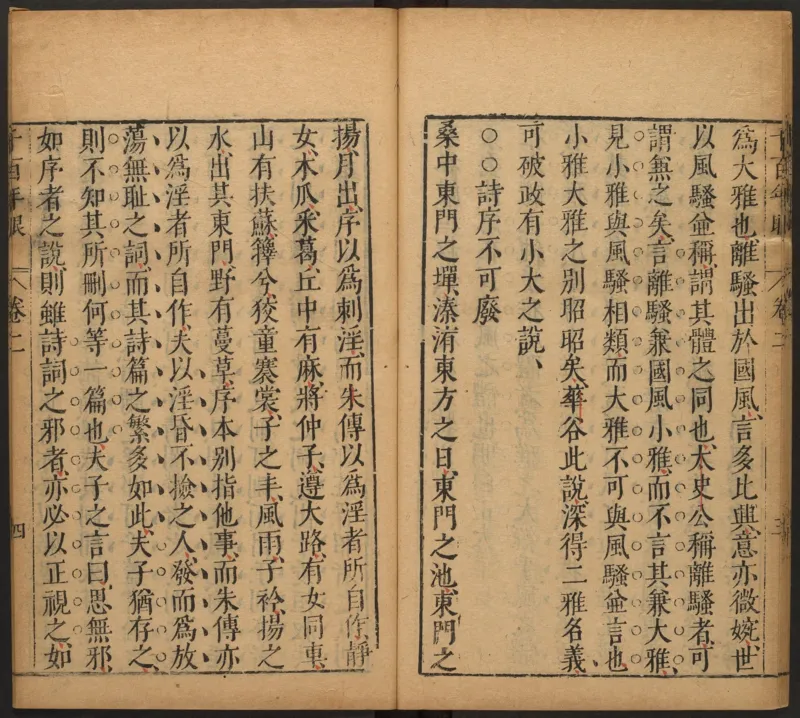 為大雅也離騷出於國風言多比興意亦微婉世
以風騷並稱謂其體之同也太史公稱離騷者可
謂兼之矣言離騷兼國風小雅而不言其兼大雅
見小雅與風騷相類而大雅不可與風騷並言也
小雅大雅之別昭昭矣華谷此說深得二雅名義
可破政有小大之說
○○詩序不可廢
桑中東門之墠溱洧東方之日東門之池東門之
揚月出序以為刺淫而朱傳以為淫者所自作靜
女木瓜采葛丘中有麻將仲子遵大路有女同車
山有扶蘇籜兮狡童褰裳子之丰風雨子衿揚之
水出其東門野有蔓草序本別指他事而朱傳亦
以為淫者所自作夫以淫昏不檢之人發而為放
蕩無恥之詞而其詩篇之繁多如此夫子猶存之
則不知其所刪何等一篇也夫子之言曰思無邪
如序者之說則雖詩詞之邪者亦必以正視之如
千百年眼 卷二 四